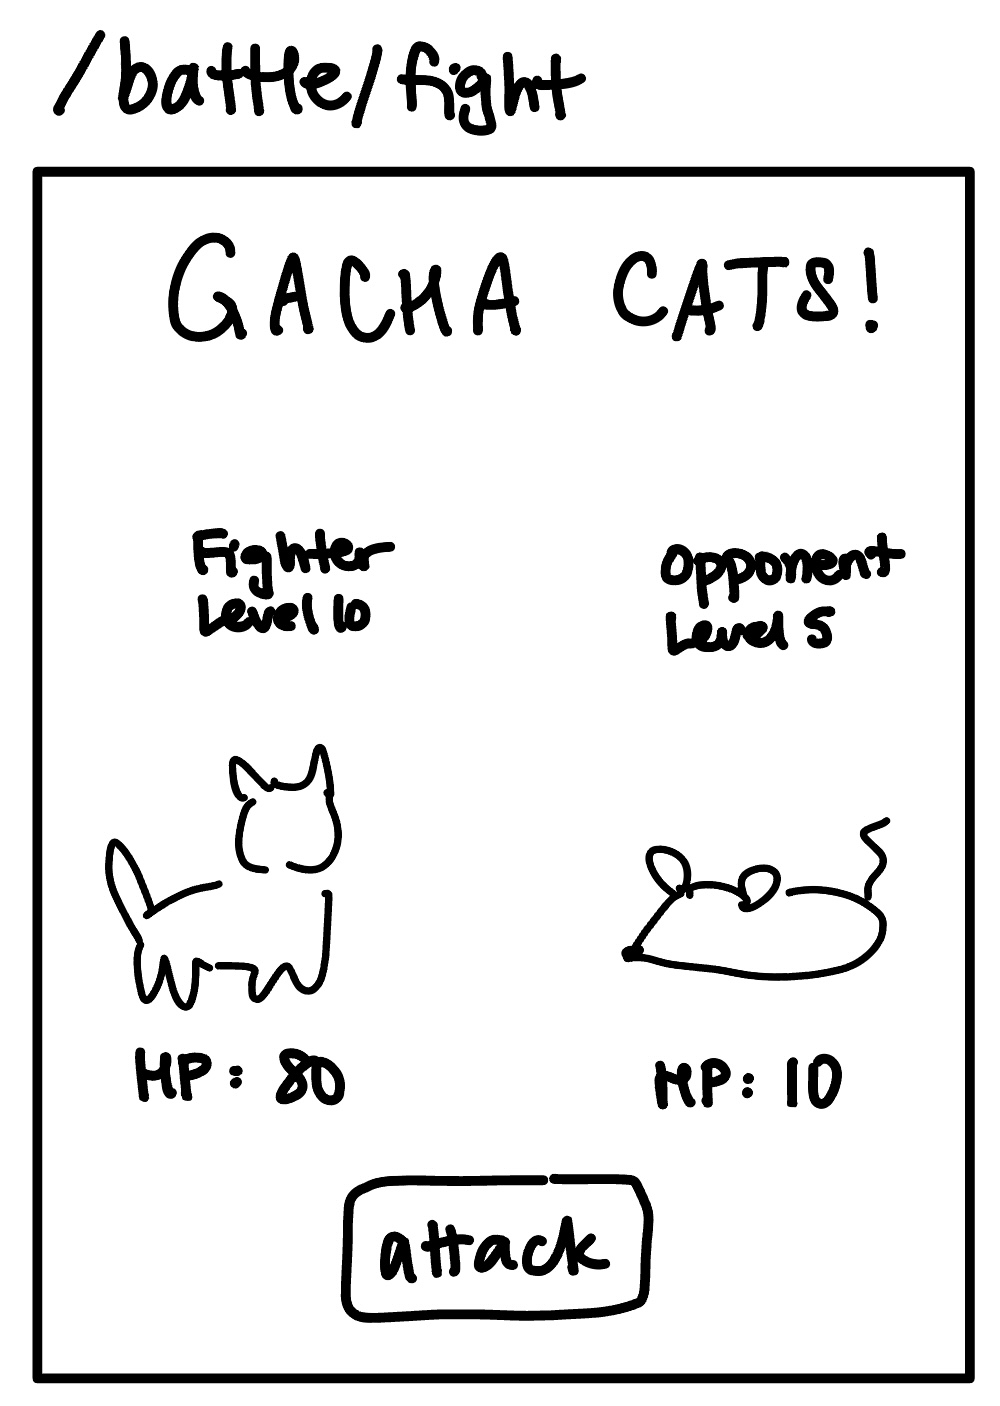 /battle/fight
GACHA CATS!
Fighter
Level 10
Opponent
Level 5
HP: 80
HP: 10
attack